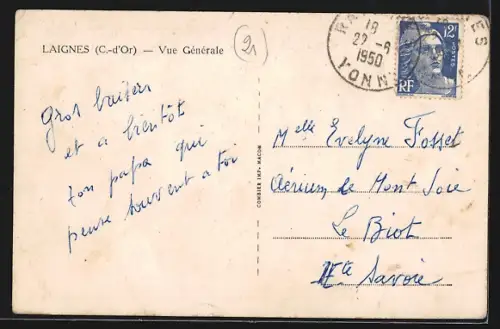 LAIGNES (C.-d'Or) — Vue Générale
21
Gros baisers
et a bientôt
ton papa qui
pense souvent a toi
COMBIER IMP. MACON
18
22 -6
1950
YONNE
12F
RF
Melle Evelyne Fosset
Aérium de Mont Joie
Le Biot
Hte Savoie